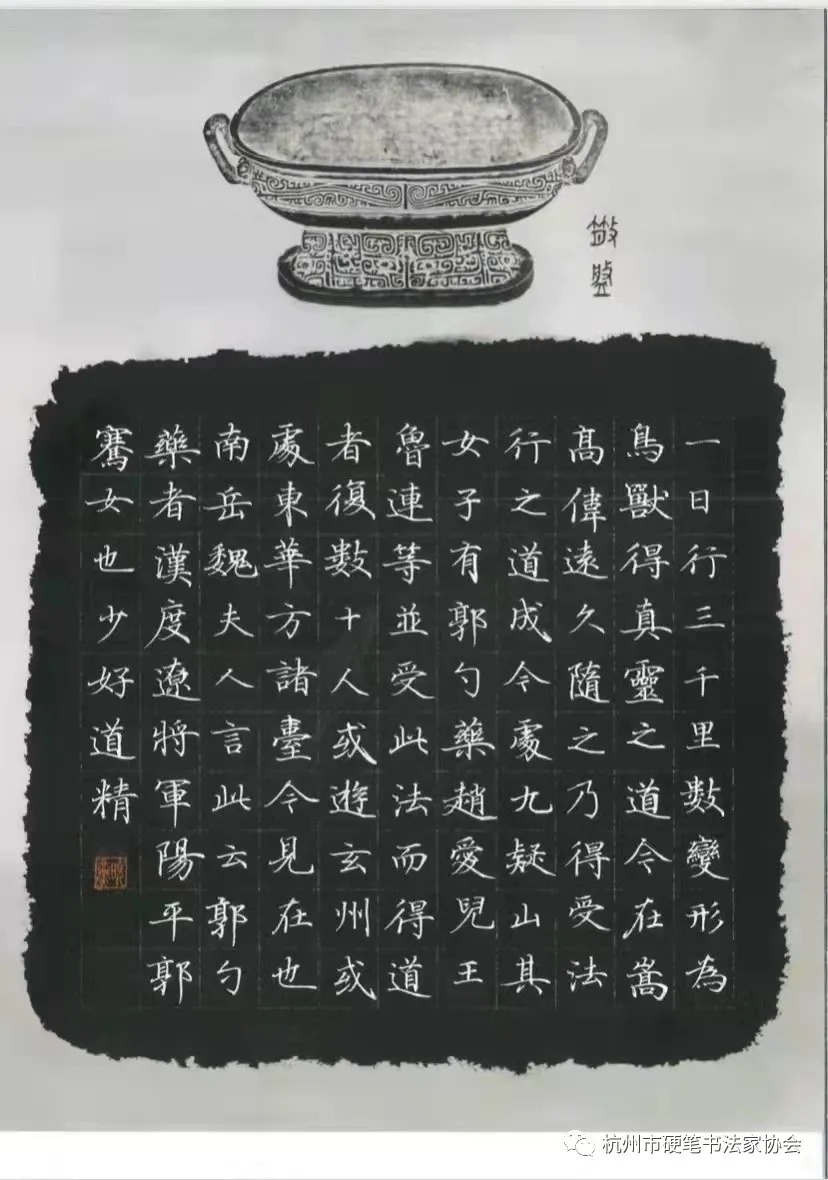 一日行三千里數變形為
鳥獸得真靈之道今在嵩
高偉遠久隨之乃得受法
行之道成今處九疑山其
女子有郭勺藥趙愛兒王
魯連等並受此法而得道
者復數十人或遊玄州或
處東華方諸臺今見在也
南岳魏夫人言此云郭勺
藥者漢度遼將軍陽平郭
騫女也少好道精
杭州市硬笔书法家协会